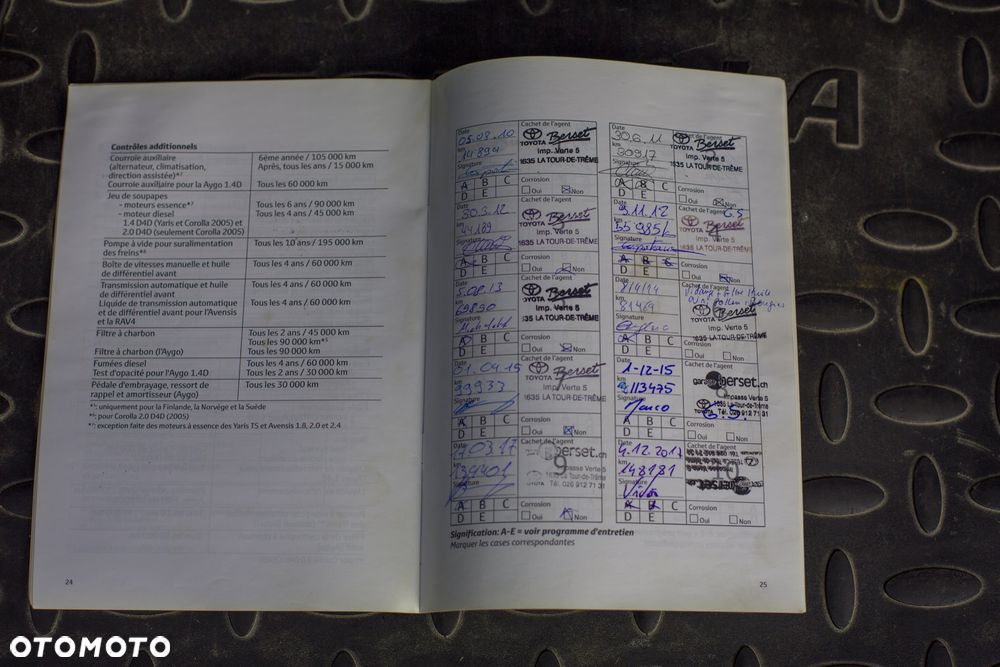 Contrôles additionnels
Courroie auxillaire
(alternateur, climatisation,
direction assistée)*⁷
6ème année / 105 000 km
Après, tous les ans / 15 000 km
Courroie auxiliaire pour la Aygo 1.4D
Tous les 60 000 km
Jeu de soupapes
- moteurs essence*⁷
Tous les 6 ans / 90 000 km
- moteur diesel
Tous les 4 ans / 45 000 km
1.4 D4D (Yaris et Corolla 2005) et
2.0 D4D (seulement Corolla 2005)
Pompe à vide pour suralimentation
des freins*⁶
Tous les 10 ans / 195 000 km
Boîte de vitesses manuelle et huile
de différentiel avant
Tous les 4 ans / 60 000 km
Transmission automatique et huile
de différentiel avant
Tous les 4 ans / 60 000 km
Liquide de transmission automatique
et de différentiel avant pour l'Avensis
et la RAV4
Tous les 4 ans / 60 000 km
Filtre à charbon
Tous les 2 ans / 45 000 km
Tous les 90 000 km*⁵
Filtre à charbon (l'Aygo)
Tous les 90 000 km
Fumées diesel
Tous les 4 ans / 60 000 km
Test d'opacité pour l'Aygo 1.4D
Tous les 2 ans / 30 000 km
Pédale d'embrayage, ressort de
rappel et amortisseur (Aygo)
Tous les 30 000 km
*⁵: uniquement pour la Finlande, la Norvège et la Suède
*⁶: pour Corolla 2.0 D4D (2005)
*⁷: exception faite des moteurs à essence des Yaris TS et Avensis 1.8, 2.0 et 2.4
24
Date
05.08.10
km
14894
Signature
Cachet de l'agent
TOYOTA Berset
Imp. Verte 5
1635 LA TOUR-DE-TRÊME
A B C
D E
Corrosion
Oui Non
Date
30.6.11
km
30917
Signature
Cachet de l'agent
TOYOTA Berset
Imp. Verte 5
1635 LA TOUR-DE-TRÊME
A B C
D E
Corrosion
Oui Non
30.3.12
44189
TOYOTA Berset
Imp. Verte 5
1635 LA TOUR-DE-TRÊME
A B C
D E
Corrosion
Oui Non
9.11.12
55985
Signature
TOYOTA Berset
Imp. Verte 5
1635 LA TOUR-DE-TRÊME
A B C
D E
Corrosion
Oui Non
.08.13
69890
Signature
TOYOTA Berset
Imp. Verte 5
35 LA TOUR-DE-TRÊME
A B C
D E
Corrosion
Oui Non
km
81469
Signature
TOYOTA Berset
Imp. Verte 5
1635 LA TOUR-DE-TRÊME
A B C
D E
Corrosion
Oui Non
01.04.15
km
99933
Signature
Cachet de l'agent
TOYOTA Berset
Imp. Verte 5
1635 LA TOUR-DE-TRÊME
A B C
D E
Corrosion
Oui Non
1-12-15
113475
Signature
Marco
garage berset.ch
Impasse Verte 5
1635 La Tour-de-Trême
TOYOTA Tél. 026 912 71 31
A B C
D E
Corrosion
Oui Non
.03.17
139401
Signature
Cachet de l'agent
berset.ch
Impasse Verte 5
La Tour-de-Trême
Tél. 026 912 71 31
A B C
D E
Corrosion
Oui Non
Date
4.12.2017
km
148181
Signature
Cachet de l'agent
A B C
D E
Corrosion
Oui Non
Signification: A-E = voir programme d'entretien
Marquer les cases correspondantes
25
OTOMOTO